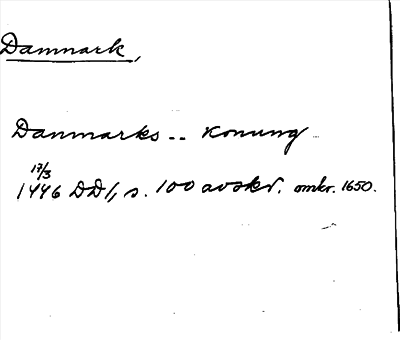 Danmark,
Danmarks .. Konung
17/3
1446 DD1, s. 100 avskr. omkr. 1650.